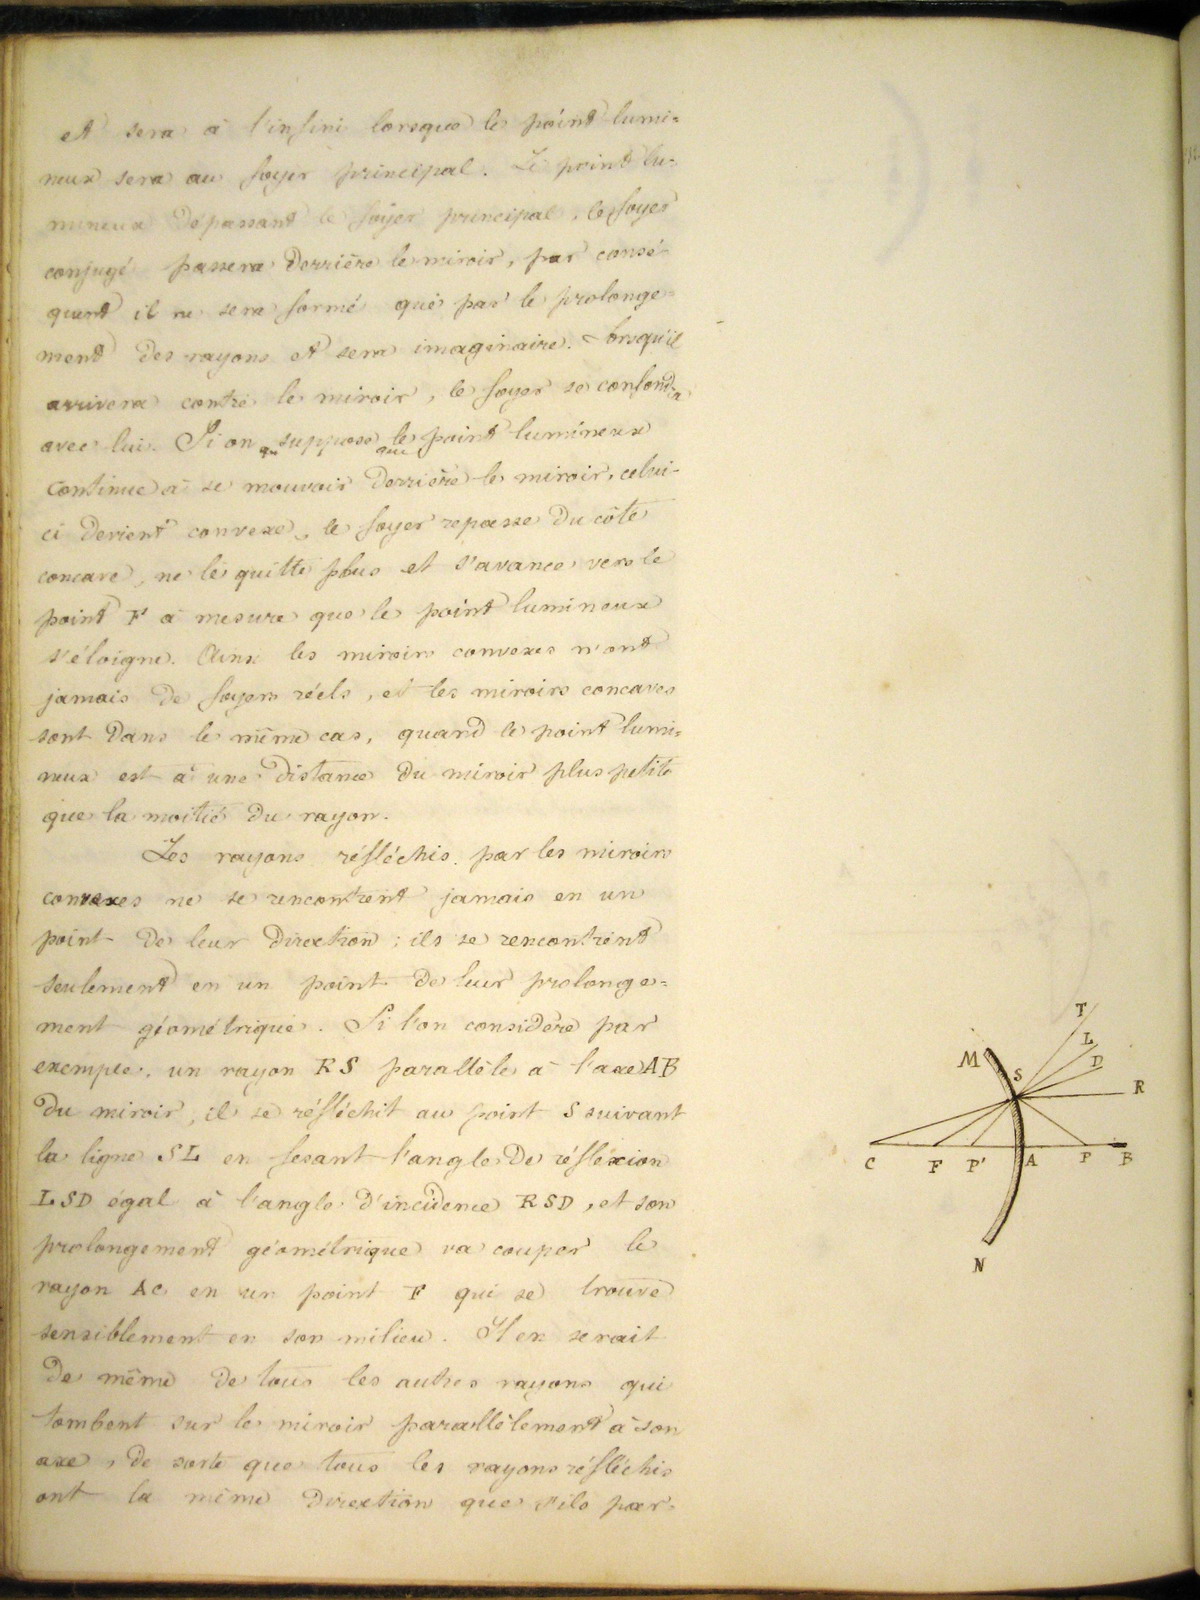 et sera à l'infini lorsque le point lumi=
neux sera au foyer principal. Le point lu=
mineux dépassant le foyer principal, le foyer
conjugé passera derrière le miroir, par consé-
quent il ne sera formé que par le prolonge=
ment des rayons et sera imaginaire. Lorsqu'il
arrivera contre le miroir, le foyer se confondra
avec lui. Si on suppose que le point lumineux
continue à se mouvoir derrière le miroir, celui-
ci devient convexe, le foyer repasse du côté
concave, ne le quitte plus et s'avance vers le
point F à mesure que le point lumineux
s'éloigne. Ainsi les miroirs convexes n'ont
jamais de foyers réels, et les miroirs concaves
sont dans le même cas, quand le point lumi=
neux est à une distance du miroir plus petite
que la moitié du rayon.
Les rayons réfléchis par les miroirs
convexes ne se rencontrent jamais en un
point de leur direction ; ils se rencontrent
seulement en un point de leur prolonge=
ment géométrique. Si l'on considère par
exemple, un rayon RS parallèle à l'axe AB
du miroir, il se réfléchit au point S suivant
la ligne SL en fesant l'angle de réfléxion
LSD égal à l'angle d'incidence RSD, et son
prolongement géométrique va couper le
rayon AC en un point F qui se trouve
sensiblement en son milieu. Il en serait
de même de tous les autres rayons qui
tombent sur le miroir parallèlement à son
axe, de sorte que tous les rayons réfléchis
ont la même direction que s'ils par-
T
L
M
D
S
R
C F P' A P B
N